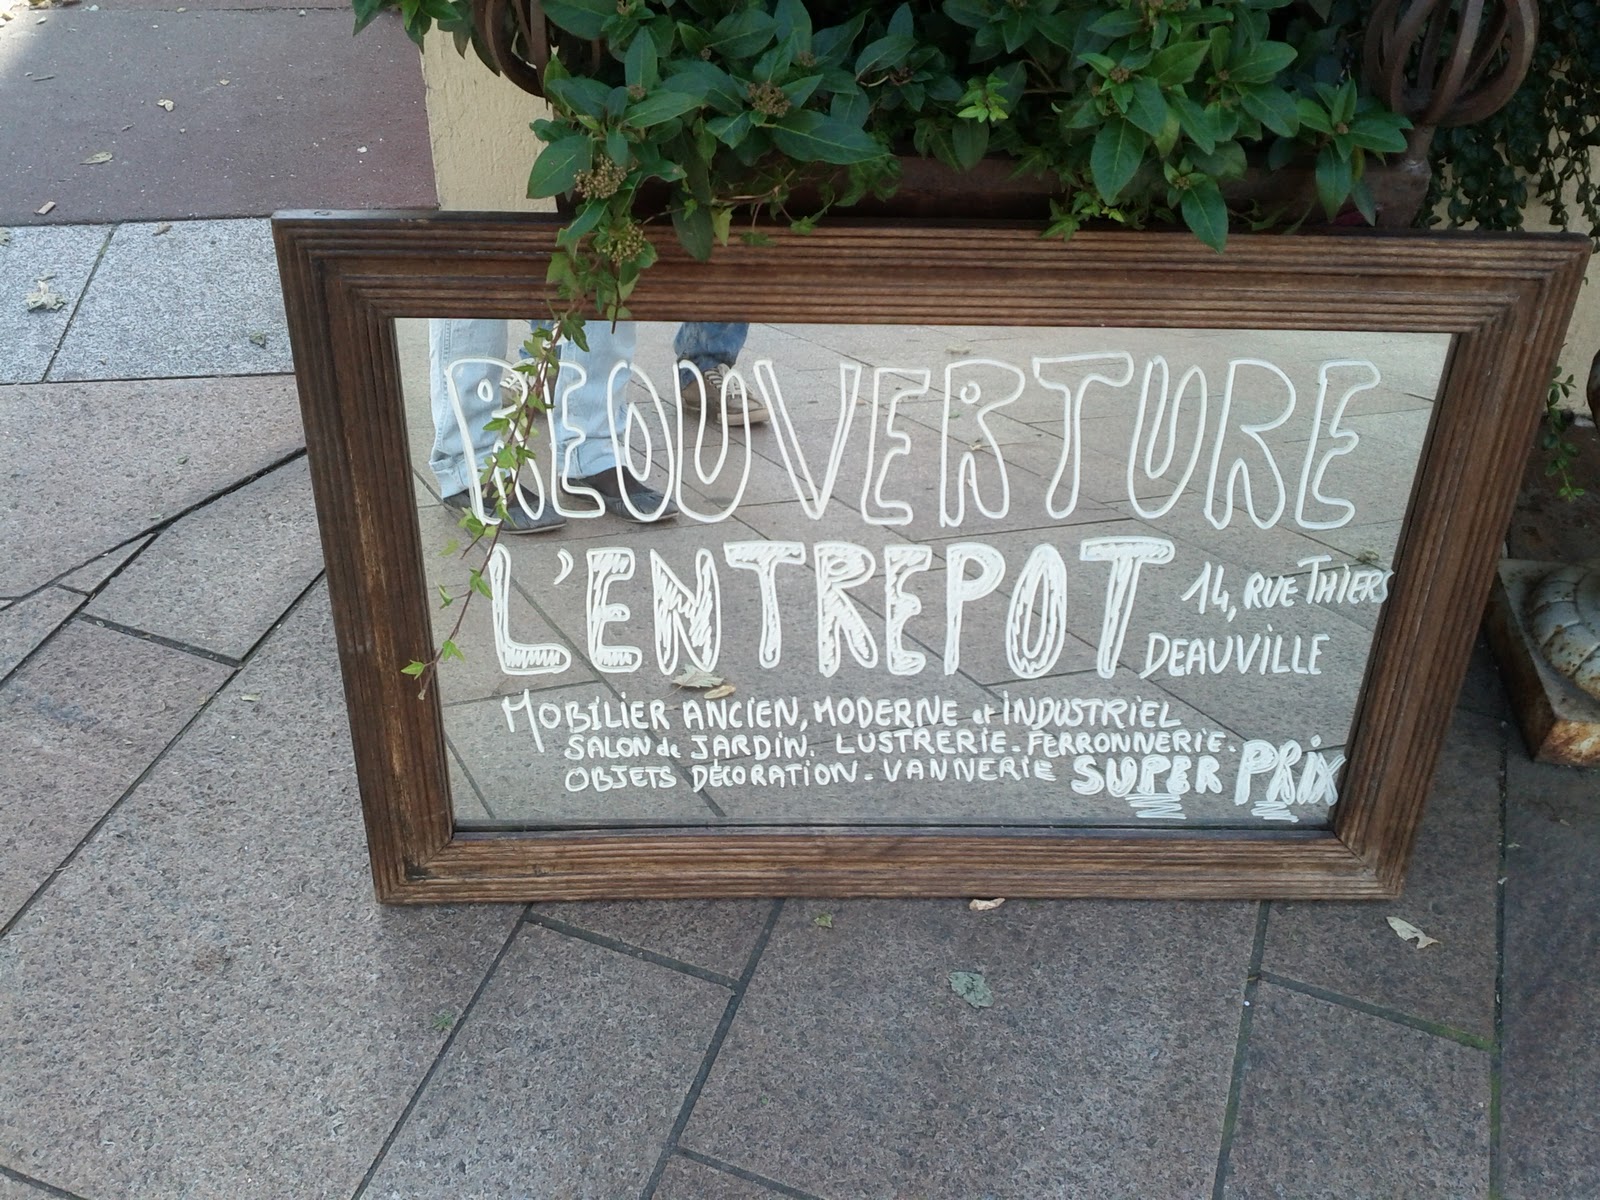 REOUVERTURE
L'ENTREPOT 14, RUE THIERS
DEAUVILLE
MOBILIER ANCIEN, MODERNE et INDUSTRIEL
SALON de JARDIN. LUSTRERIE. FERRONNERIE.
OBJETS DÉCORATION. VANNERIE SUPER PRIX